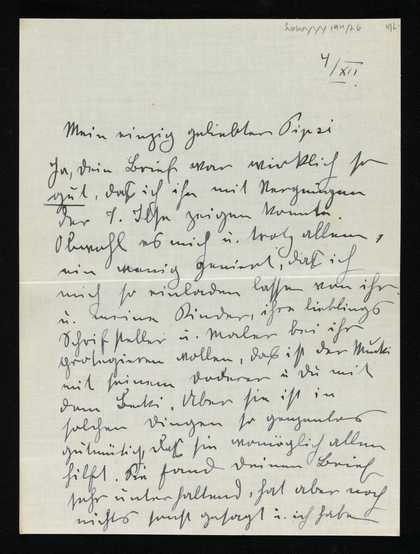 4/XII.
Mein einzig geliebter Pipsi
Ja, Dein Brief war wirklich so
gut, daß ich ihn mit Vergnügen
der T. Ilse zeigen konnte.
Obwohl es mich u. trotz allem,
ein wenig geniert, daß ich
mich so einladen lassen von ihr
u. meine Kinder, ihre Lieblings
Schriftsteller u. Maler bei ihr
protegieren wollen, das ist der
mit seinem Doderer u Du mit
dem. Aber sie ist in
solchen Dingen so grenzenlos
gutmütig, daß sie womöglich allen
hilft. Sie fand deinen Brief
sehr unterhaltend, hat aber noch
nichts sonst gesagt u. ich habe